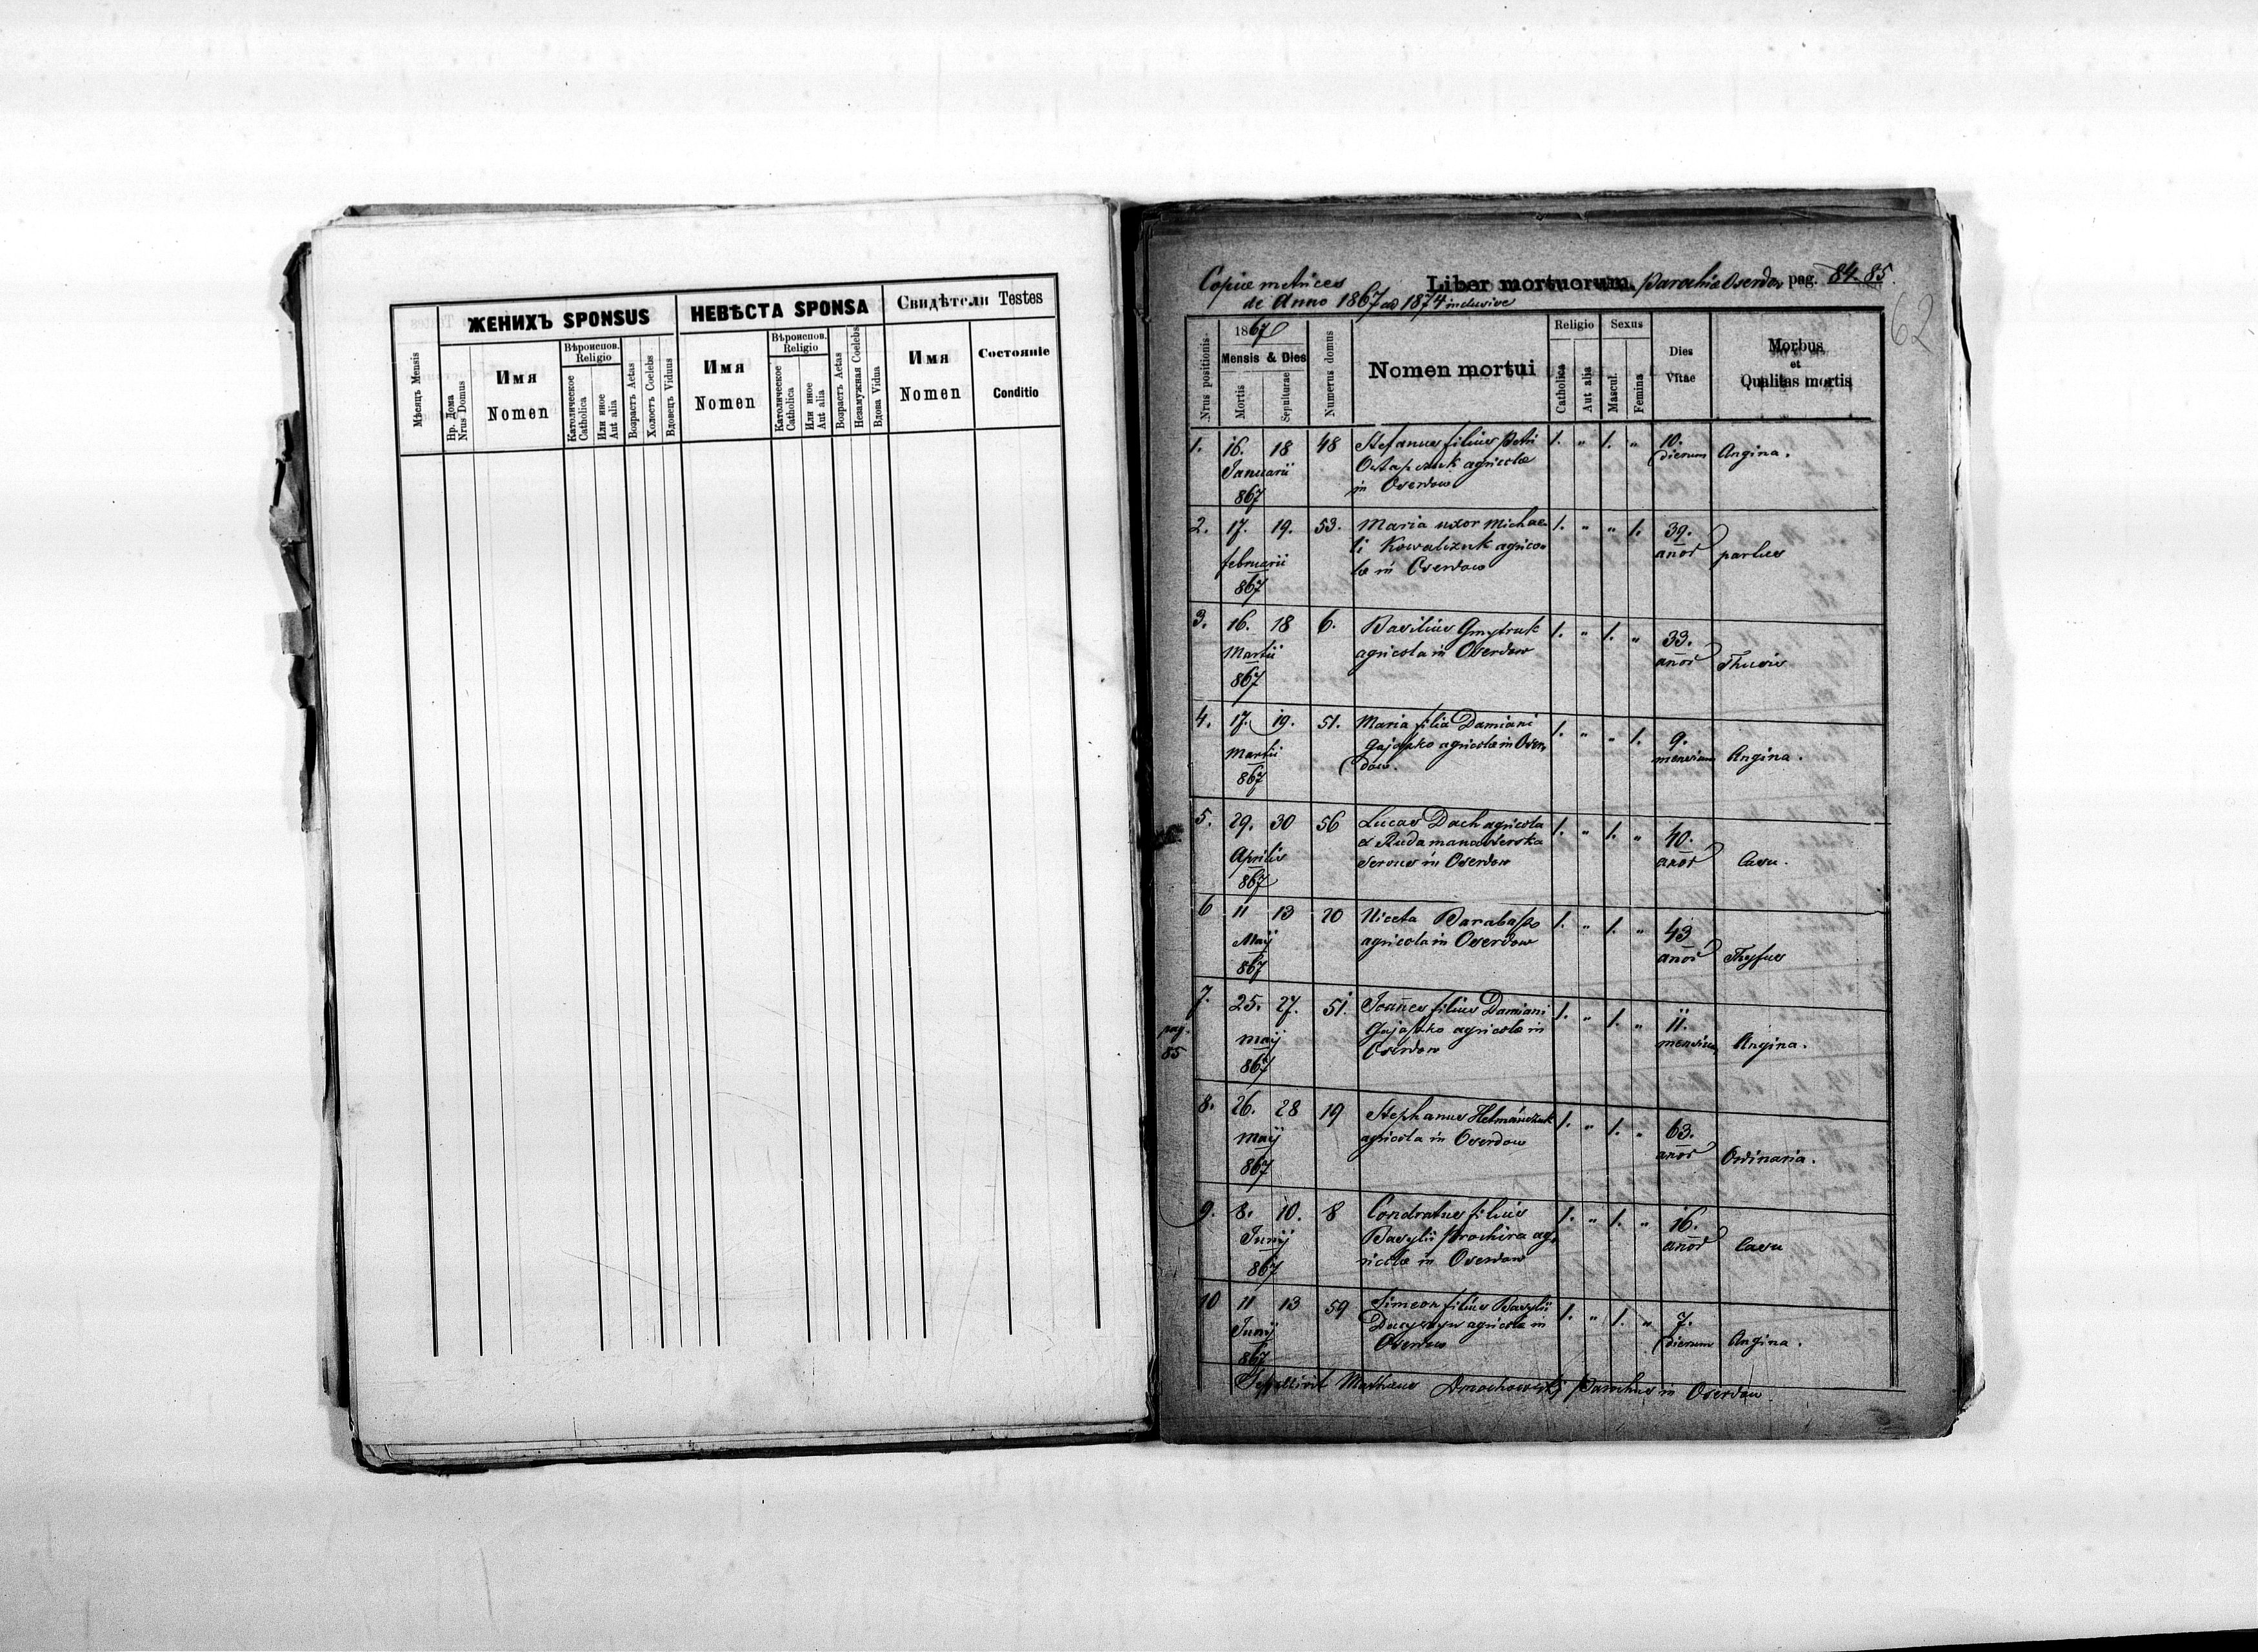 ЖЕНИХЪ SPONSUS
НЕВѢСТА SPONSA
Свидѣтели Testes
Мѣсяцъ Mensis
Нр. Дома
Nrus Domus
Имя
Nomen
Вѣроиспов.
Religio
Католическое
Catholica
Или иное
Aut alia
Возрастъ Aetas
Холостъ Coelebs
Вдовецъ Viduus
Имя
Nomen
Вѣроиспов.
Religio
Католическое
Catholica
Или иное
Aut alia
Возрастъ Aetas
Незамужная Coelebs
Вдова Vidua
Имя
Nomen
Состояніе
Conditio
Copiae metrices Liber mortuorum. Parochiae Oserdow pag. 84.85.
de Anno 1867 ad 1874 inclusive
62
Nrus positionis
1867
Mensis & Dies
Mortis
Sepulturae
Numerus domus
Nomen mortui
Religio
Catholica
Aut alia
Sexus
Mascul.
Femina
Dies
Vitae
Morbus
et
Qualitas mortis
1. 16. 18 48 Stefanus filius Petri 1. " 1. " 10.
Januarii Ostapczuk agricolae dierum Angina.
867 in Oserdow
2. 17. 19. 53. Maria uxor Michae- 1. " " 1. 39.
februarii li Kowalczuk agrico- anor partus
867 lae in Oserdow
3. 16. 18 6. Basilius Gmytruk 1. " 1. " 33.
Martii agricola in Oserdow anor
867
4. 17. 19. 51. Maria filia Damiani 1. " " 1. 9.
Martii Gajaszko agricolae in Oser- mensium Angina.
867 dow.
5. 29. 30 56 Lucas Dach agricola 1. " 1. " 40.
Aprilis servus in Oserdow anor Casu.
867
6 11 13 20 Niceta Barabaszo 1. " 1. " 43
Maij agricola in Oserdow anor Thyfus
867
7. 25. 27. 51. Joannes filius Damiani 1. " 1. " 11.
pag. 85 maij Gajaszko agricolae in mensium Angina.
867 Oserdow
8. 26. 28 19 Stephanus Hetmańczuk 1. " 1. " 63.
maij agricola in Oserdow anor Ordinaria.
867
9. 8. 10. 8 Condratus filius 1. " 1. " 16.
Junij Basylii Prochira ag- anor Casu
867 ricolae in Oserdow
10 11 13 59 Simeon filius Basylii 1. " 1. " 7.
Junij agricolae in dierum Angina.
867 Oserdow
Sepellivit Mathaeus Dmochowski Parochus in Oserdow.